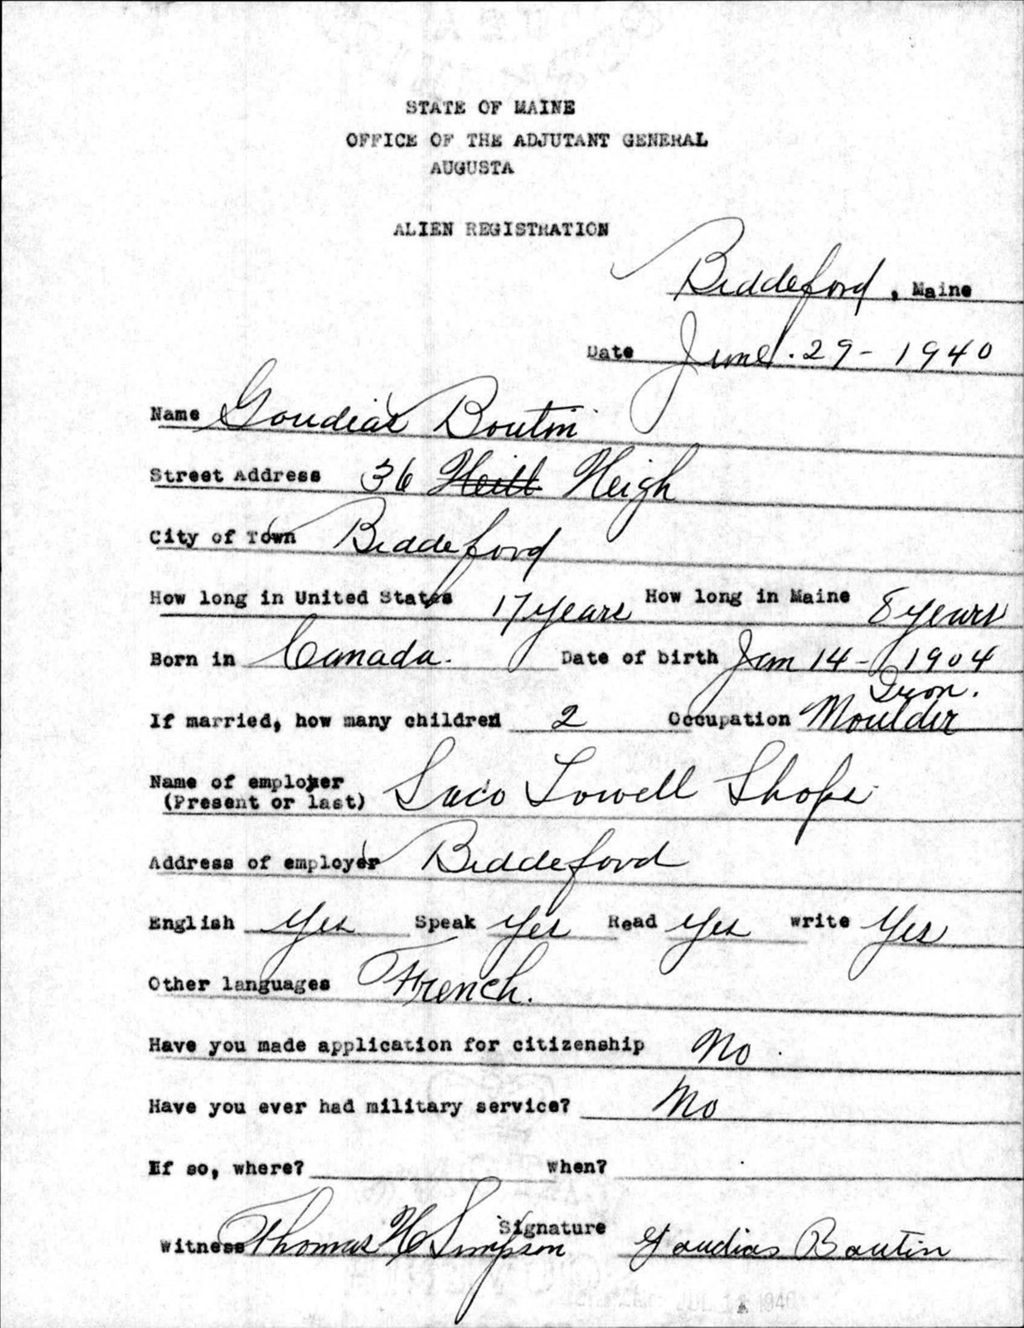 STATE OF MAINE
OFFICE OF THE ADJUTANT GENERAL
AUGUSTA
ALIEN REGISTRATION
Biddeford, Maine
Date June. 29 - 1940
Name Goudias Boutin
Street Address 36 Heill Heigh
City of Town Biddeford
How long in United States 17 years How long in Maine 8 years
Born in Canada. Date of birth Jan 14 - 1904
Iron.
If married, how many children 2 Occupation Moulder
Name of employer
(Present or last) Saco Lowell Shops
Address of employer Biddeford
English Yes Speak Yes Read Yes Write Yes
Other languages French.
Have you made application for citizenship No
Have you ever had military service? No
If so, where? When?
Signature
Witness Thomas H Simpson Gaudias Boutin